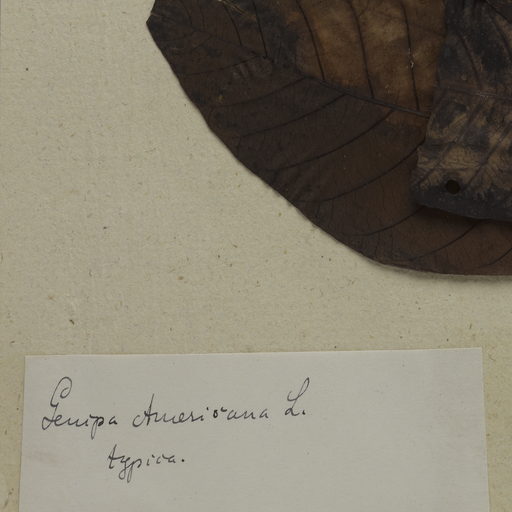 Genipa Americana L.
typica.